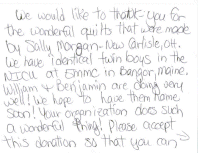 We would like to thank you for
the wonderful quilts that were made
by Sally Morgan - New Carlisle, OH.
We have identical twin boys in the
NICU at EMMC in Bangor, Maine.
William & Benjamin are doing very
well! We hope to have them home
soon! Your organization does such
a wonderful thing! Please accept
this donation so that you can →